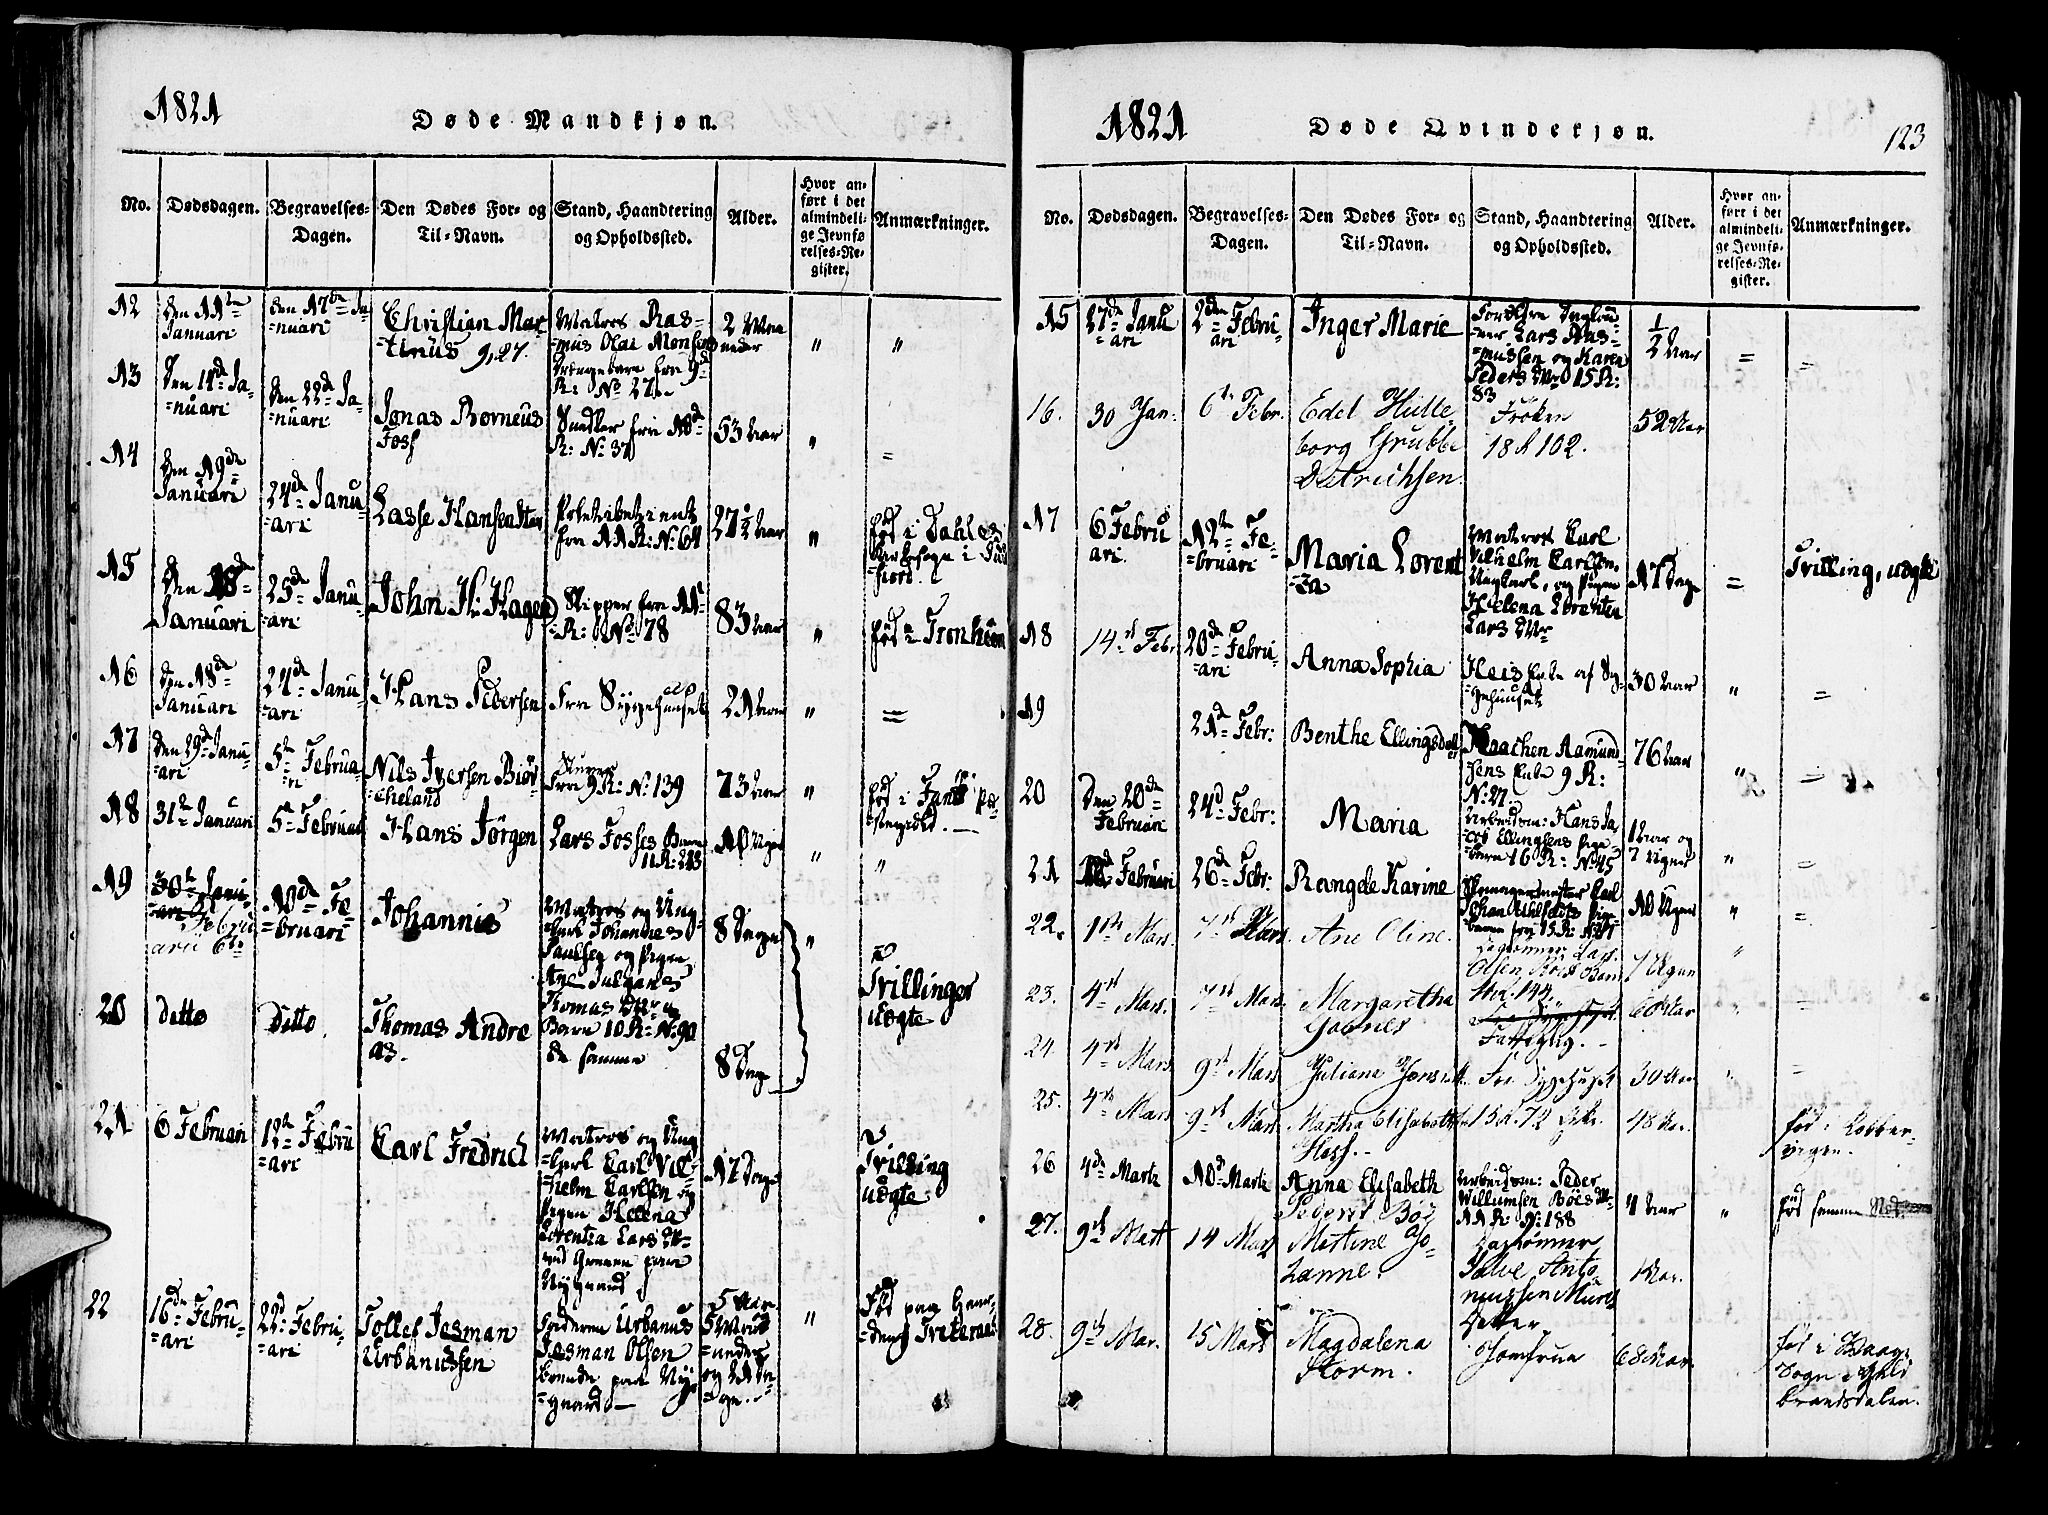 1821
Døde Mandkjøn.
No.
Dødsdagen.
Begravelses-
Dagen.
Den Dødes For- og
Til-Navn.
Stand, Haandtering
og Opholdssted.
Alder.
Hvor an-
ført i det
almindeli-
ge Jevnfø-
relses-Re-
gister.
Anmærkninger.
12
den 11te
Januari
den 17de Ja-
nuari
Christian Mar-
tinus 9,27.
Matros Ras-
mus Olai Monsens
Drengebarn fra 9de
R: No 27
2 Maa
neder
"
"
13
Den 14de Ja-
nuari
den 22de Ja-
nuari
Jonas Borneus
Foss
Snedker fra 10de
R: No 37
53 Aar
"
=
14
den 19de
Januari
24de Janu-
ari
Lasse Hansen
fra 11 R: No 64
27 1/2 Aar
"
fød i
15
Den 18de
Januari
25de Janu-
ari
John H: Hagen
Skipper fra 11te
R: No 78
83 Aar
"
fød i Tronhiem
16
den 18de
Januari
24de Janu-
ari
Hans Pedersen
Fra Sygehuuset
21 Aar
"
=
17
den 29de Janu-
ari
5te Februa-
ri
Nils Iversen Biør-
cheland
Fra 9 R: No 139
73 Aar
"
fød i
18
31te Januari
5te Februari
Hans Jørgen
Lars Fosses Barn
11 R: 213
10 Uger
"
"
19
30te Janu-
ari Febru
arii 6te
10de Fe-
bruari
Johannis
Matros og Ung-
karl Johannes
Paulsen og Pigen
Ane
Thomas Dtr
Barn 10 R: No 90
8 Dage
"
Tvillinger
uægte
20
ditto
ditto
Thomas Andre
as.
de samme
8 Dage
21
6 Februari
12te Febru
ari
Carl Fredrich
Matros og Ung-
karl Carl Vil-
helm Carlsen og
Pigen Helena
Lorentia Lars Dtr
Nygaard
17 Dage
Tvilling
uægte
22
16de Febru-
ari
22de Febru-
ari
Tollef Jesman
Urbanussen
Faderen Urbanus
Jesman Olsen
boende paa Ny-
gaard
5 Aar
5 Maa
neder
og 21 Da-
ge.
"
Fød paa
1821
Døde Qvindekjøn.
123
No.
Dødsdagen.
Begravelses-
Dagen.
Den Dødes For- og
Til-Navn.
Stand, Haandtering
og Opholdssted.
Alder.
Hvor an-
ført i det
almindeli-
ge Jevnfø-
relses-Re-
gister.
Anmærkninger.
15
27de Janu
ari
2den Febru-
ari
Inger Marie
Forældre
Lars Ras-
mussen og Karen
Peders Dtr 15 R:
83
1/2 Aar
=
=
16.
30 Jan:
6te Febr.
Edel Hille
borg Grubbe
Detrichsen.
Frøken
18 R 102.
52 Aar
17
6 Febru
ari.
12te Fe-
bruari
Maria Lorent
za
Matros Carl
Vilhelm Carlsen,
Ungkarl, og Pigen
Helena Lorentia
Lars Dtr
17 Dage
=
Tvilling, uægte
18
14de Febr
20de Febru-
ari
Anna Sophia
Heis Enke af Sy-
gehuuset
30 Aar
"
=
19
21de Febr:
Benthe Ellingsdatter
Haachen Aamund-
sens Enke 9 R:
No 27.
76 Aar
"
=
20
Den 20de
Februari
24de Febr:
Maria
Arbeidsm: Hans Ja-
cob Ellingsens Pige-
barn 16 R: No 45
1 Aar og
7 Uger
"
=
21
Februari
26de Febr:
Rangele Karine
Carl
Johan
barn fra 15 R:
10 Uger
"
=
22.
1ste Mars.
7de Mars.
Ane Oline.
Dagtønner Lars
Olsen Barn
No. 144.
7 Ugen
"
23.
4de Mars.
7de Mars.
Margaretha
Fattiglig.
60 Aar
"
=
24.
4de Mars
9de Mars
Juliana
Fra Sygehuset
30 Aar
"
=
25.
4de Mars
9de Mars.
Martha Elisabeth
Hess.
15 R. 72 Enke.
48 Aar.
fød i Kobber-
vigen.
26
4de Martz
10de Martz
Anna Elisabeth
Peders Boe
Arbeidsm: Peder
Willumsen Böes
11 R: No: 188
4 Aar
"
fød samme
27.
9de Mart
14 Mars
Mertine Jo-
hanne.
Salve Anto
niussen
Datter
1 Aar.
28.
9de Mar.
15 Mars
Magdalena
Storm.
Jomfrue
68 Aar.
fød i Waage
Sogn i Guld
brandsdalen.